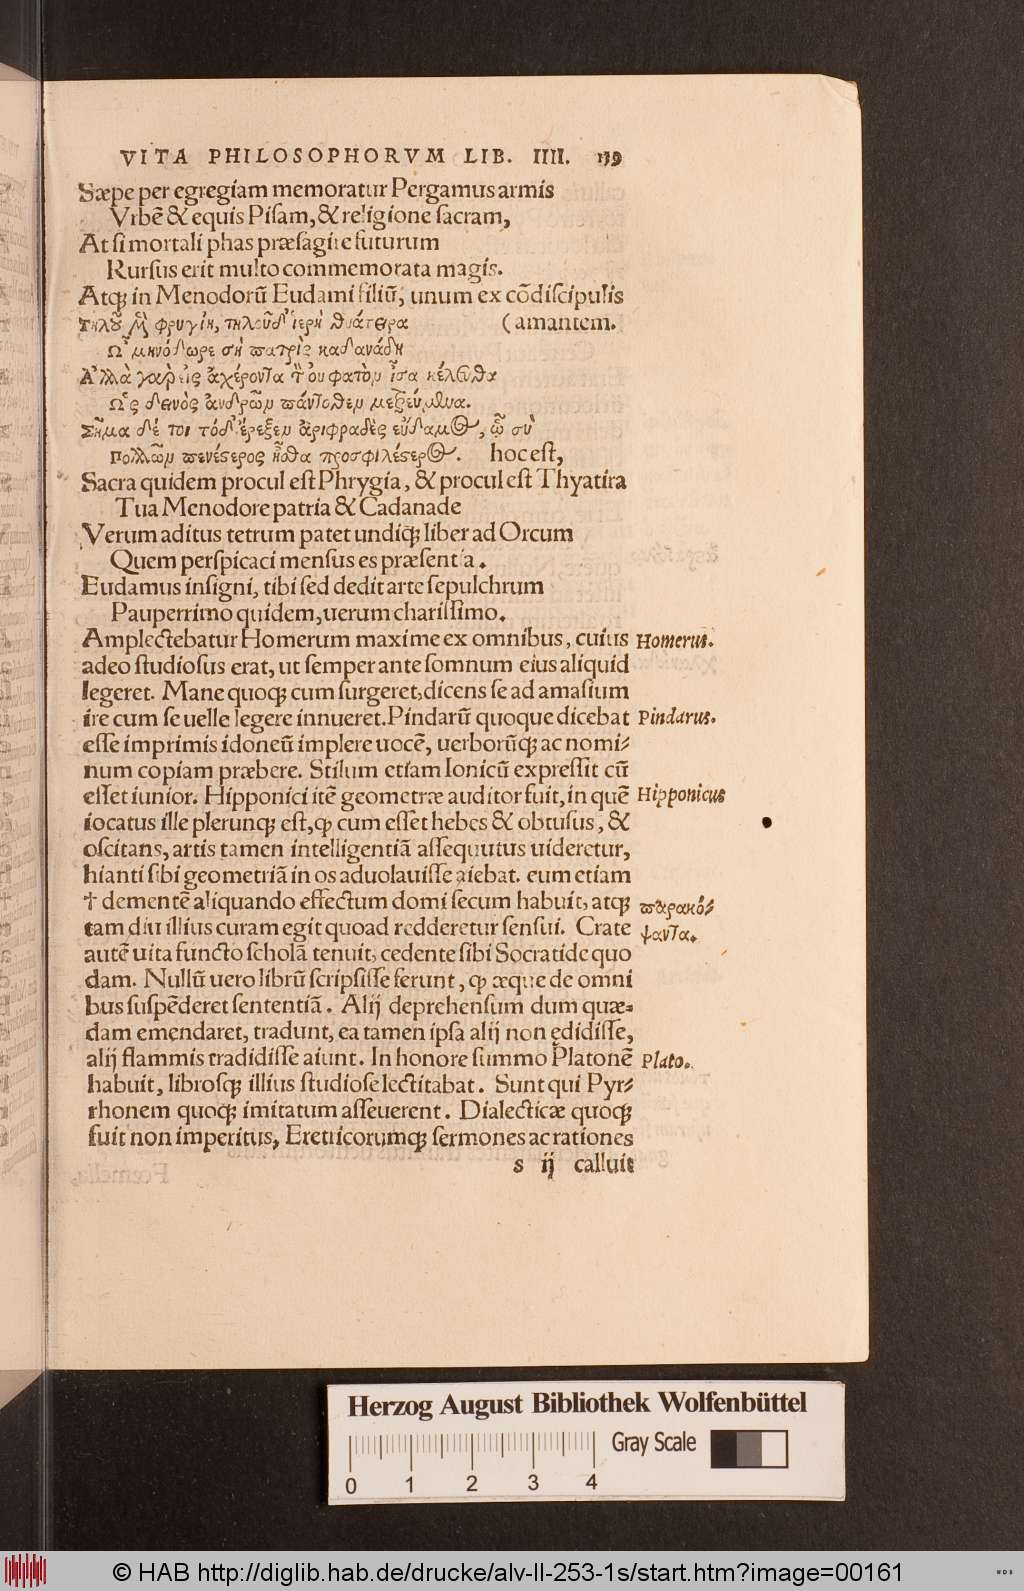 VITA PHILOSOPHORVM LIB. IIII. 139
Sæpe per egregiam memoratur Pergamus armis
Vrbē & equis Pisam, & religione sacram,
At si mortali phas præsagire futurum
Rursus erit multo commemorata magis.
Atq; in Menodorū Eudami filiū, unum ex cōdiscipulis
Τηλοῦ μὲν φρυγίη, τηλοῦ δ' ἱερὴ θυάτειρα (amantem.
Ὦ μηνόδωρε σὴ πατρὶς καδανάδη
Ἀλλὰ γαρ εἰς ἀχέροντα τὸν οὐ φατὸν ἶσα κέλευθα
Ὡς δενὸς ἀνδρῶν πάντοθεν μετρεύμενα.
Σῆμα δέ τοι τόδ' ἔρεξεν ἀριφραδὲς εὔδαμος, ᾧ σὺ
Πολλῶν πενέστερος ἦσθα προσφιλέστερος. hoc est,
Sacra quidem procul est Phrygia, & procul est Thyatira
Tua Menodore patria & Cadanade
Verum aditus tetrum patet undiq; liber ad Orcum
Quem perspicaci mensus es præsentia.
Eudamus insigni, tibi sed dedit arte sepulchrum
Pauperrimo quidem, uerum charissimo.
Amplectebatur Homerum maxime ex omnibus, cuius Homerus.
adeo studiosus erat, ut semper ante somnum eius aliquid
legeret. Mane quoq; cum surgeret, dicens se ad amasium
ire cum se uelle legere innueret. Pindarū quoque dicebat Pindarus.
esse imprimis idoneū implere uocē, uerborūq; ac nomi⸗
num copiam præbere. Stilum etiam Ionicū expressit cū
esset iunior. Hipponici itē geometræ auditor fuit, in quē Hipponicus
iocatus ille plerunq; est, ꝙ cum esset hebes & obtusus, &
oscitans, artis tamen intelligentiā assequutus uideretur,
hianti sibi geometriā in os aduolauisse aiebat. eum etiam
† dementē aliquando effectum domi secum habuit, atq; παρακό⸗
tam diu illius curam egit quoad redderetur sensui. Crate ψαντα.
autē uita functo scholā tenuit, cedente sibi Socratide quo
dam. Nullū uero librū scripsisse ferunt, ꝙ æque de omni
bus suspēderet sententiā. Alij deprehensum dum quæ⸗
dam emendaret, tradunt, ea tamen ipsa alij non ędidisse,
alij flammis tradidisse aiunt. In honore summo Platonē Plato.
habuit, librosq; illius studiose lectitabat. Sunt qui Pyr⸗
rhonem quoq; imitatum asseuerent. Dialecticæ quoq;
fuit non imperitus, Eretricorumq; sermones ac rationes
s ij calluit
Herzog August Bibliothek Wolfenbüttel
Gray Scale
0 1 2 3 4
© HAB http://diglib.hab.de/drucke/alv-ll-253-1s/start.htm?image=00161